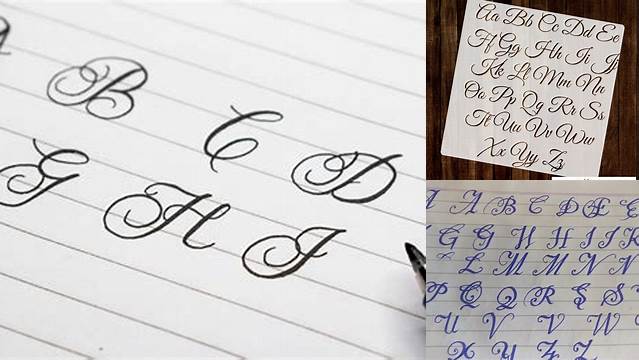 B C D
G H I
Aa Bb Cc Dd Ee
Ff Gg Hh Ii Jj
Kk Ll Mm Nn
Oo Pp Qq Rr Ss
Tt Uu Vv Ww
Xx Yy Zz
A B C D E
G G H H I I K
L M M N N
P Q Q R S
U V V W
X Y Z Z